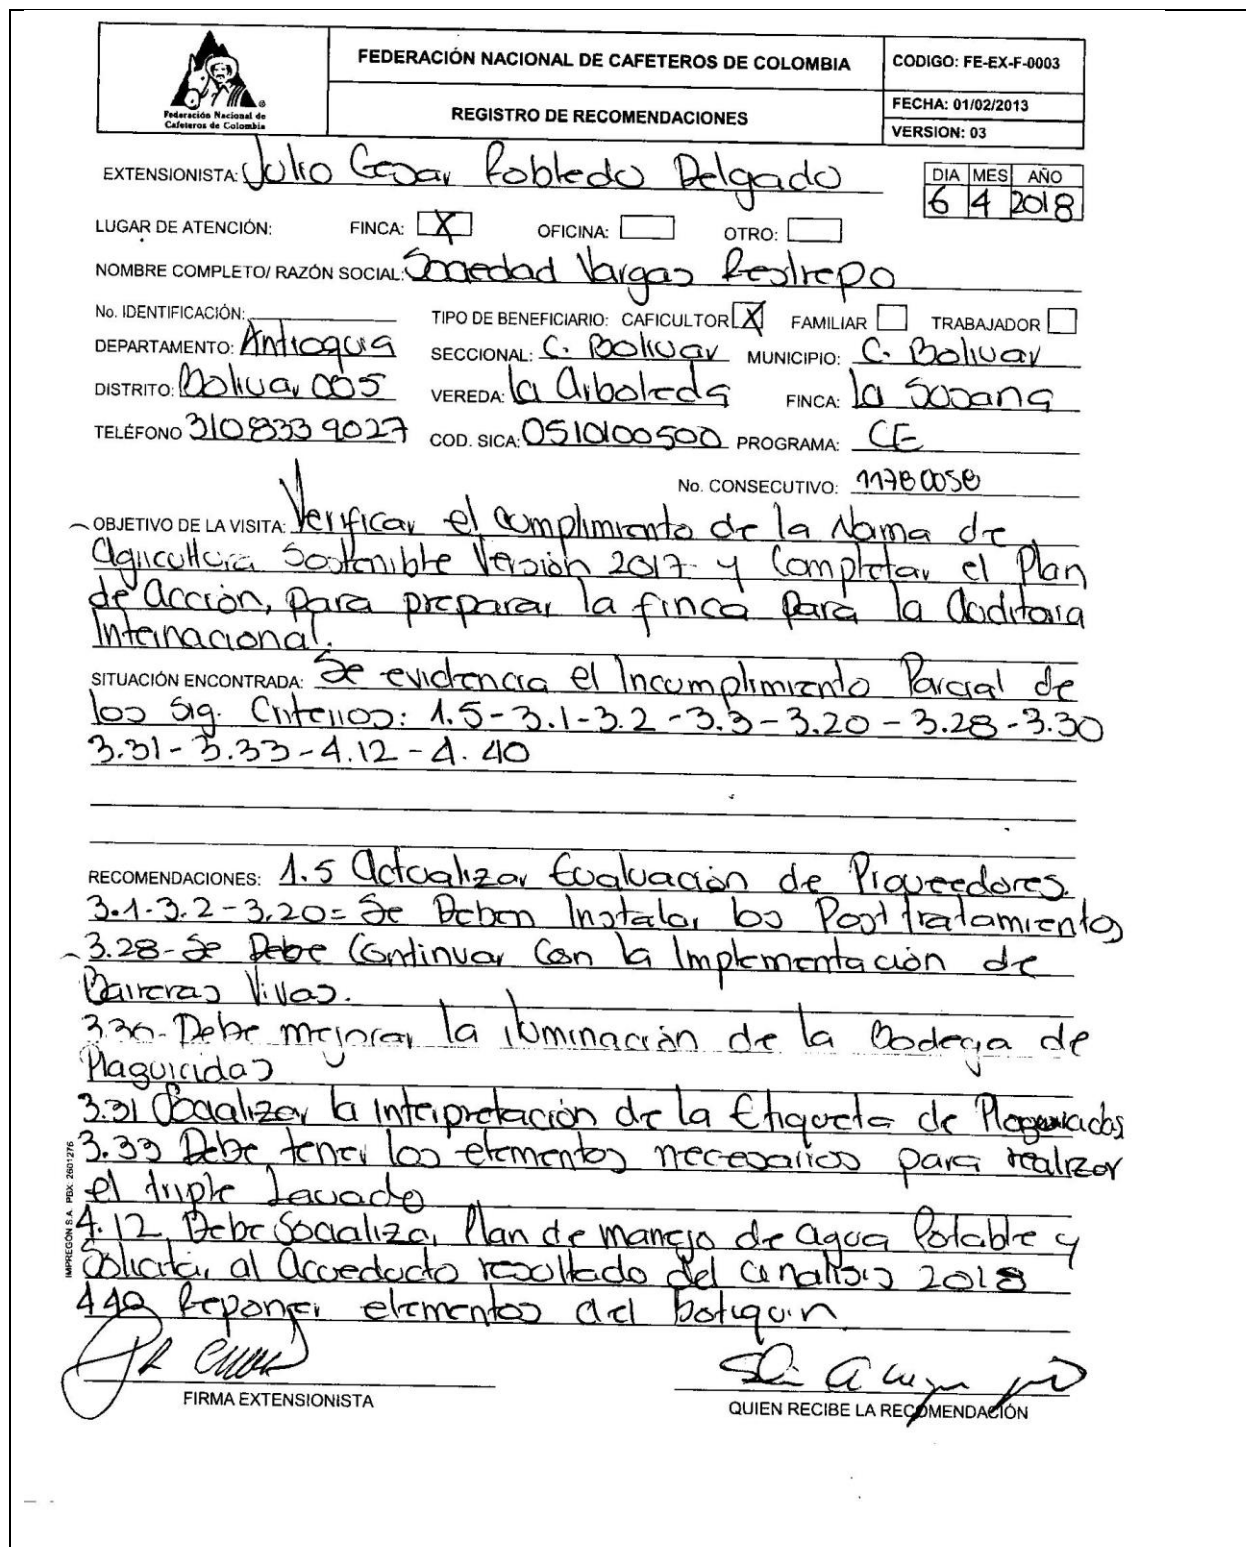 Federación Nacional de
Cafeteros de Colombia
FEDERACIÓN NACIONAL DE CAFETEROS DE COLOMBIA
CODIGO: FE-EX-F-0003
REGISTRO DE RECOMENDACIONES
FECHA: 01/02/2013
VERSION: 03
EXTENSIONISTA: Julio Cesar Robledo Delgado
DIA MES AÑO
6 4 2018
LUGAR DE ATENCIÓN: FINCA: X OFICINA: OTRO:
NOMBRE COMPLETO/ RAZÓN SOCIAL: Sociedad Vargas Restrepo
No. IDENTIFICACIÓN: TIPO DE BENEFICIARIO: CAFICULTOR X FAMILIAR TRABAJADOR
DEPARTAMENTO: Antioquia SECCIONAL: C. Bolivar MUNICIPIO: C. Bolivar
DISTRITO: Bolivar 005 VEREDA: la Arboleda FINCA: la
TELÉFONO 3108339027 COD. SICA: 0510100500 PROGRAMA: CE
No. CONSECUTIVO: 11780058
OBJETIVO DE LA VISITA: Verificar el cumplimiento de la Norma de
Agricultura Sostenible Versión 2017 y Completar el Plan
de acción, para preparar la finca para la Auditoria
Internacional.
SITUACIÓN ENCONTRADA: Se evidencia el Incumplimiento Parcial de
los Sig. Criterios: 1.5-3.1-3.2-3.3-3.20-3.28-3.30
3.31-3.33-4.12-4.40
RECOMENDACIONES: 1.5 Actualizar Evaluación de Proveedores.
3.1-3.2-3.20= Se Deben Instalar los Post tratamientos
3.28- Se Debe Continuar Con la Implementación de
Barreras Vivas.
3.30- Debe mejorar la iluminación de la Bodega de
Plaguicidas
3.31 Socializar la interpretación de la Etiqueta de Plaguicidas
3.33 Debe tener los elementos necesarios para realizar
el triple Lavado
4.12 Debe Socializar Plan de manejo de agua Potable y
Solicitar al Acueducto resultado del analisis 2018
4.40 Reponer elementos del botiquin
FIRMA EXTENSIONISTA
QUIEN RECIBE LA RECOMENDACIÓN
IMPREGÓN S.A. PBX: 2601276